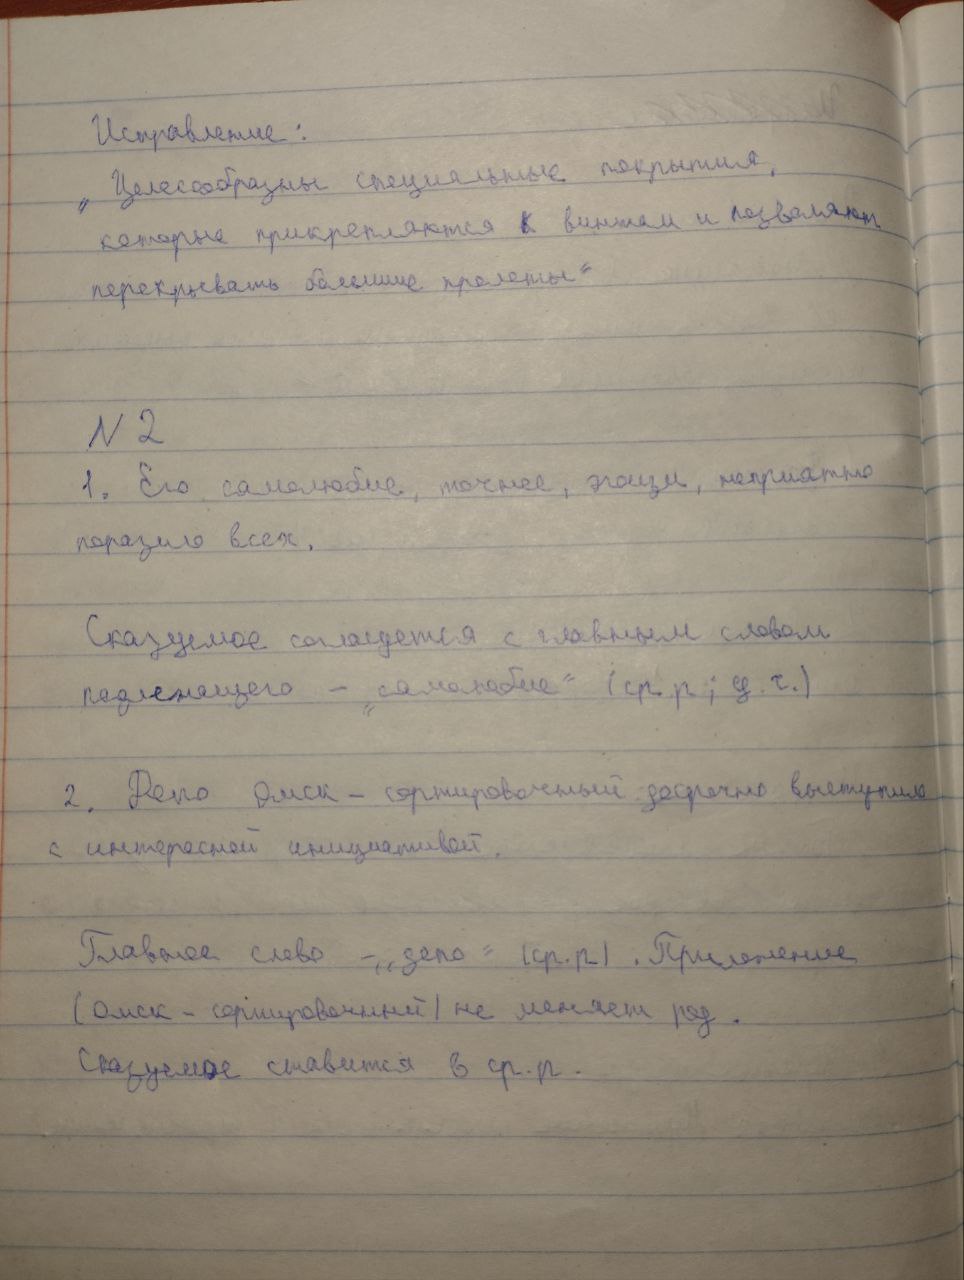 Исправление:
„Целесообразны специальные покрытия,
которые прикрепляются к винтам и позволяют
перекрывать большие пролеты"
N 2
1. Его самолюбие, точнее, эгоизм, неприятно
поразило всех.
Сказуемое согласуется с главным словом
подлежащего – „самолюбие" (ср. р; ед. ч.)
2. Депо Омск – сортировочный досрочно выступило
с интересной инициативой.
Главное слово – „депо" (ср. р.). Приложение
(Омск – сортировочный) не меняет род.
Сказуемое ставится в ср. р.